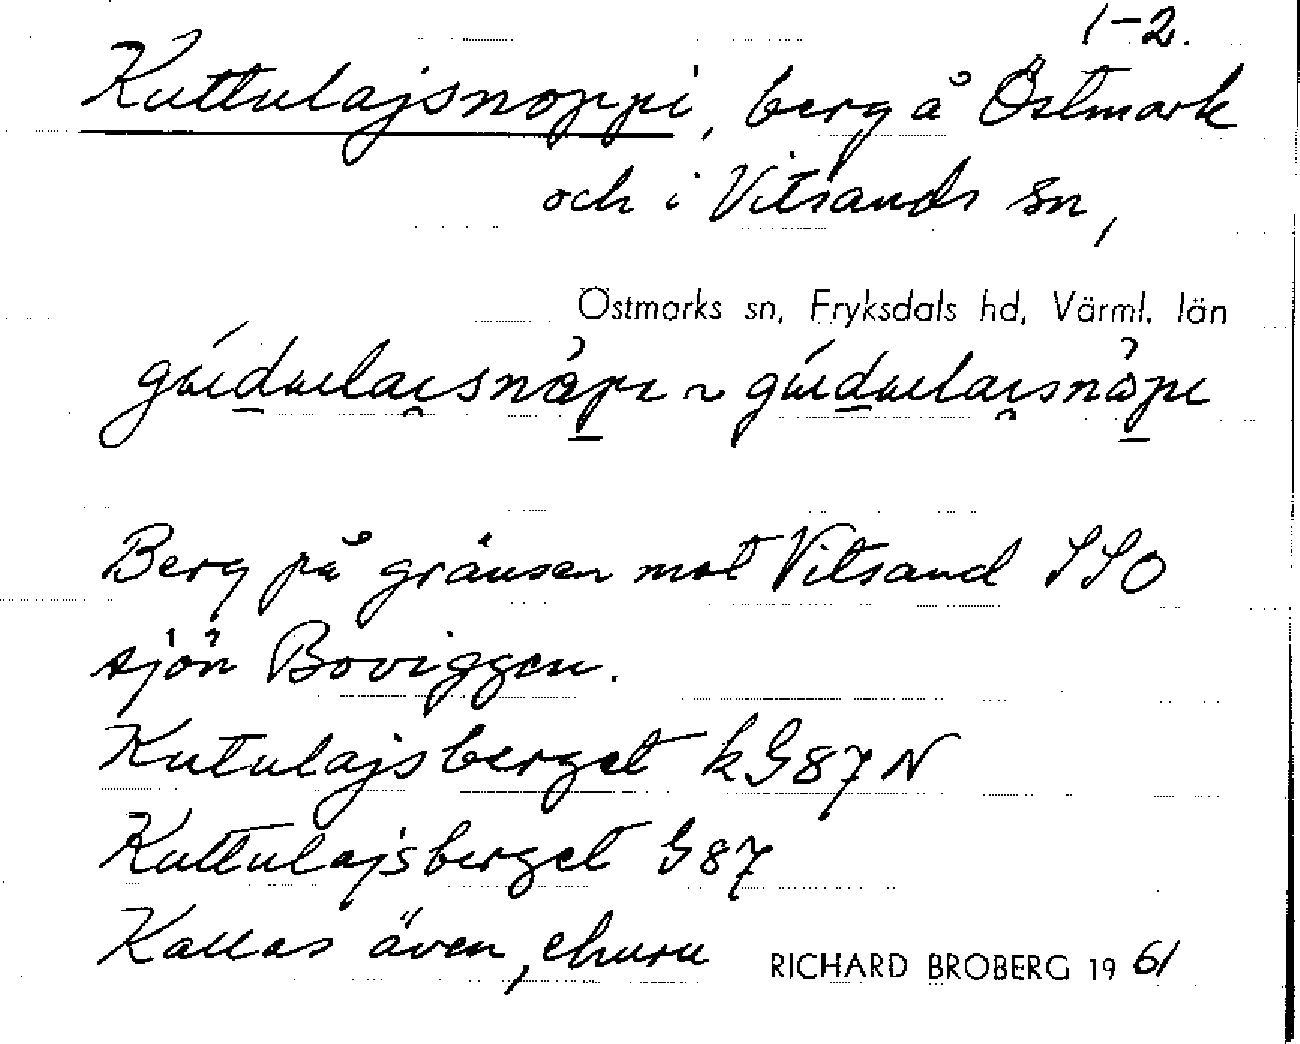 1-2.
Kuttulajsnoppi, berg å Östmark
och i Vitsands sn,
Östmarks sn, Fryksdals hd, Värml. län
Berg på gränsen mot Vitsand SSO
sjön Boviggen.
Kutulajsberget kG87N
Kuttulajsberget G87
Kallas även, churu
RICHARD BROBERG 19 61